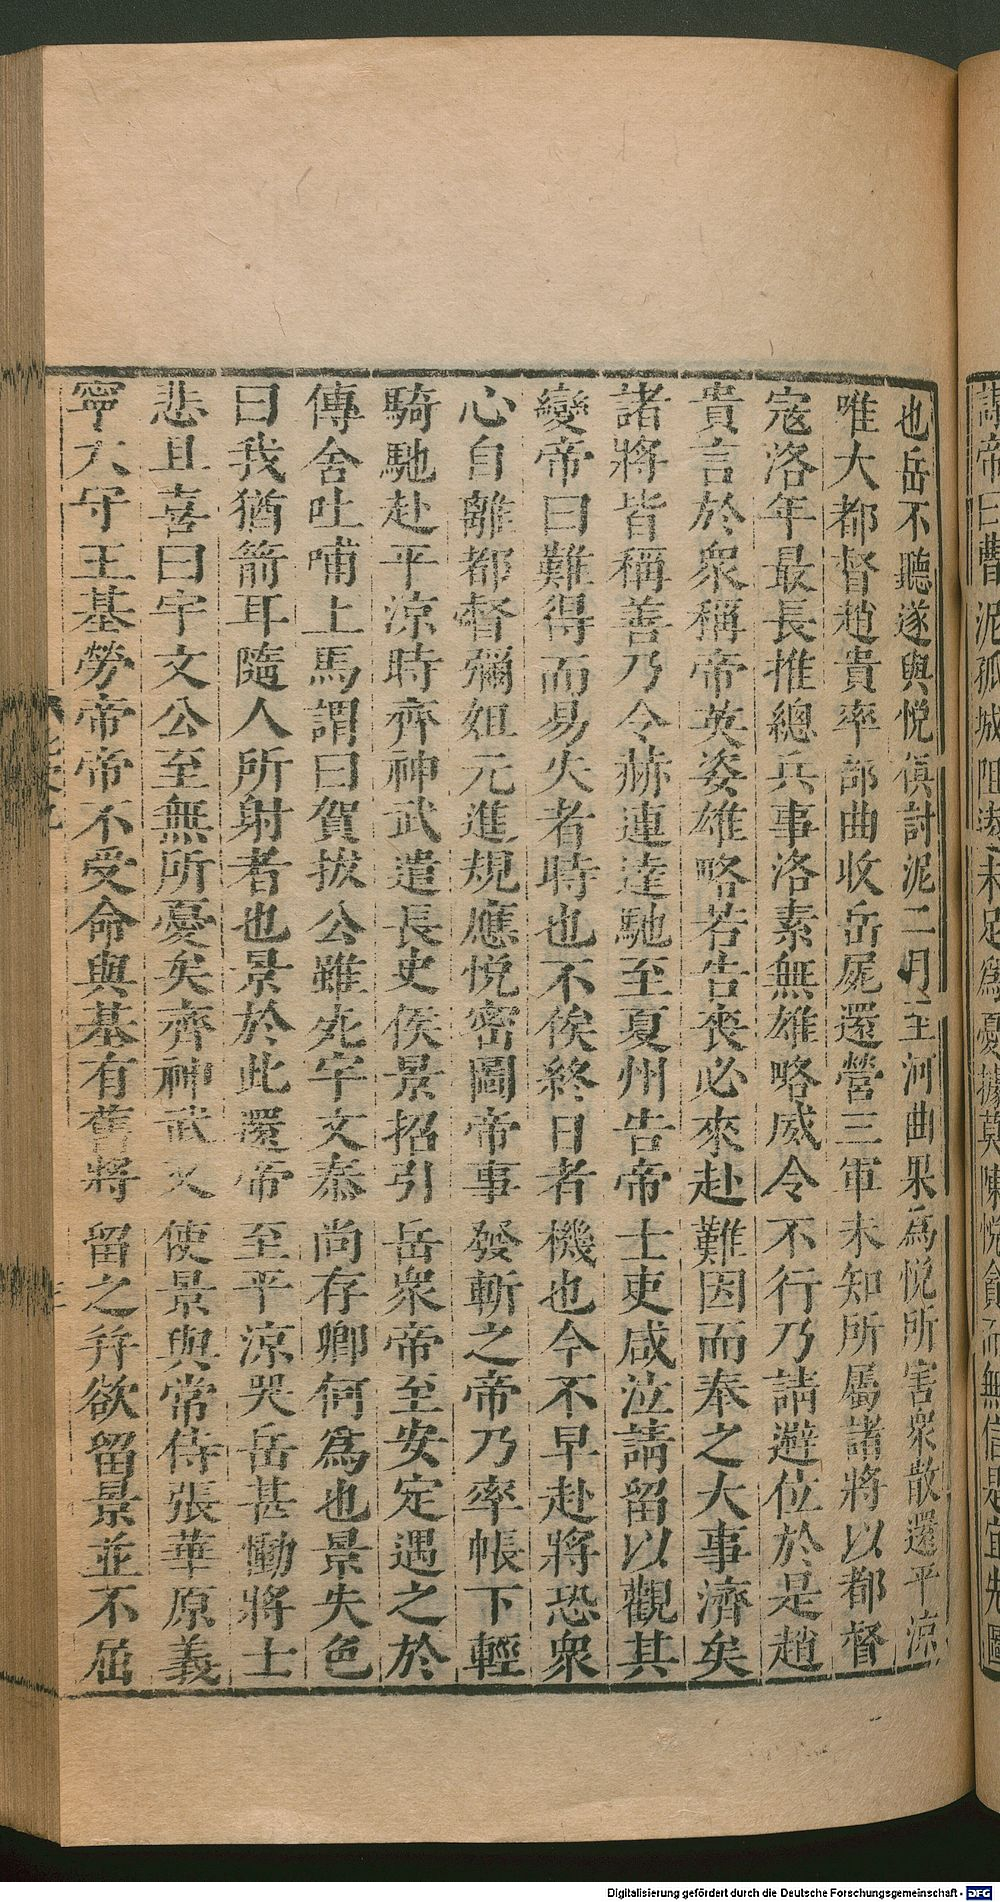 謀帝曰曹泥孤城阻遠未足為憂據莫陳悅貪而無信思宜先圖
也岳不聽遂與悅俱討泥二月至河曲果為悅所害衆散還平涼
唯大都督趙貴率部曲收岳屍還營三軍未知所屬諸將以都督
寇洛年最長推總兵事洛素無雄略威令不行乃請避位於是趙
貴言於衆稱帝英姿雄略若告喪必來赴難因而奉之大事濟矣
諸將皆稱善乃令赫連達馳至夏州告帝士吏咸泣請留以觀其
變帝曰難得而易失者時也不俟終日者機也今不早赴將恐衆
心自離都督彌姐元進規應悅密圖帝事發斬之帝乃率帳下輕
騎馳赴平涼時齊神武遣長史侯景招引岳衆帝至安定遇之於
傳舍吐哺上馬謂曰賀拔公雖死宇文泰尚存卿何爲也景失色
曰我猶箭耳隨人所射者也景於此還帝至平涼哭岳甚慟將士
悲且喜曰宇文公至無所憂矣齊神武又使景與常侍張華原義
寧太守王基勞帝帝不受命與基有舊將留之并欲留景並不屈
Digitalisierung gefördert durch die Deutsche Forschungsgemeinschaft - DFG